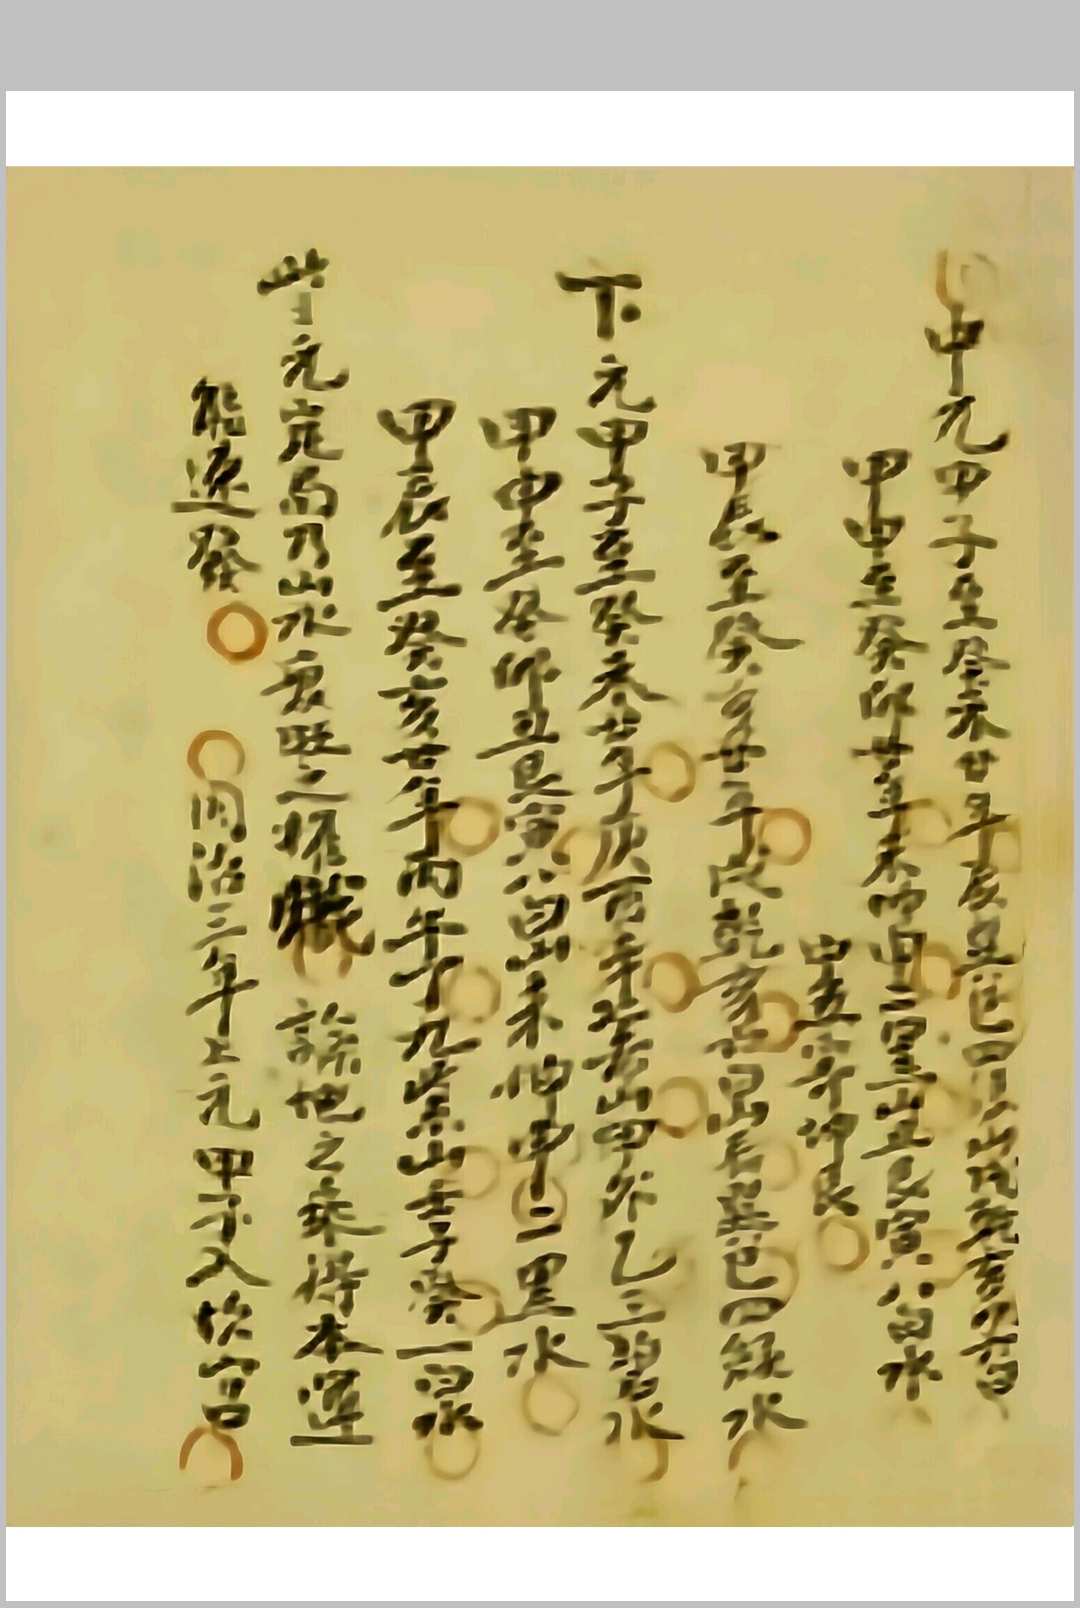 中元甲子至癸未廿年辰巽巳四綠山戌乾亥六白
甲申至癸卯廿年未坤申二黑山丑艮寅八白水
中五寄坤艮
甲辰至癸亥廿年戌乾亥六白山辰巽巳四綠水
下元甲子至癸未廿年庚酉辛七赤山甲卯乙三碧水
甲申至癸卯丑艮寅八白山未坤申二黑水
甲辰至癸亥廿年丙午丁九紫山壬子癸一白水
此元乃山水衰旺之權 諒地之乘得本運
能速發 同治三年上元甲子入坎宮